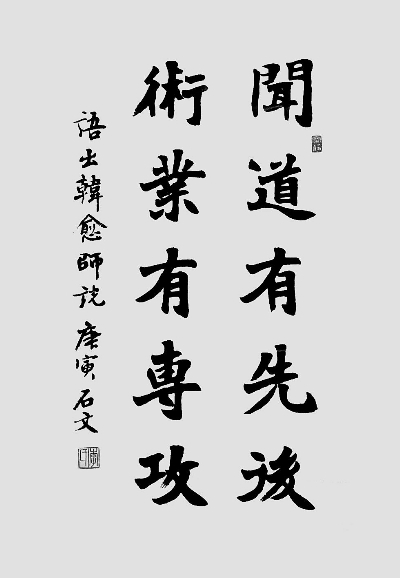 聞道有先後
術業有專攻
語出韓愈師说 庚寅 石文